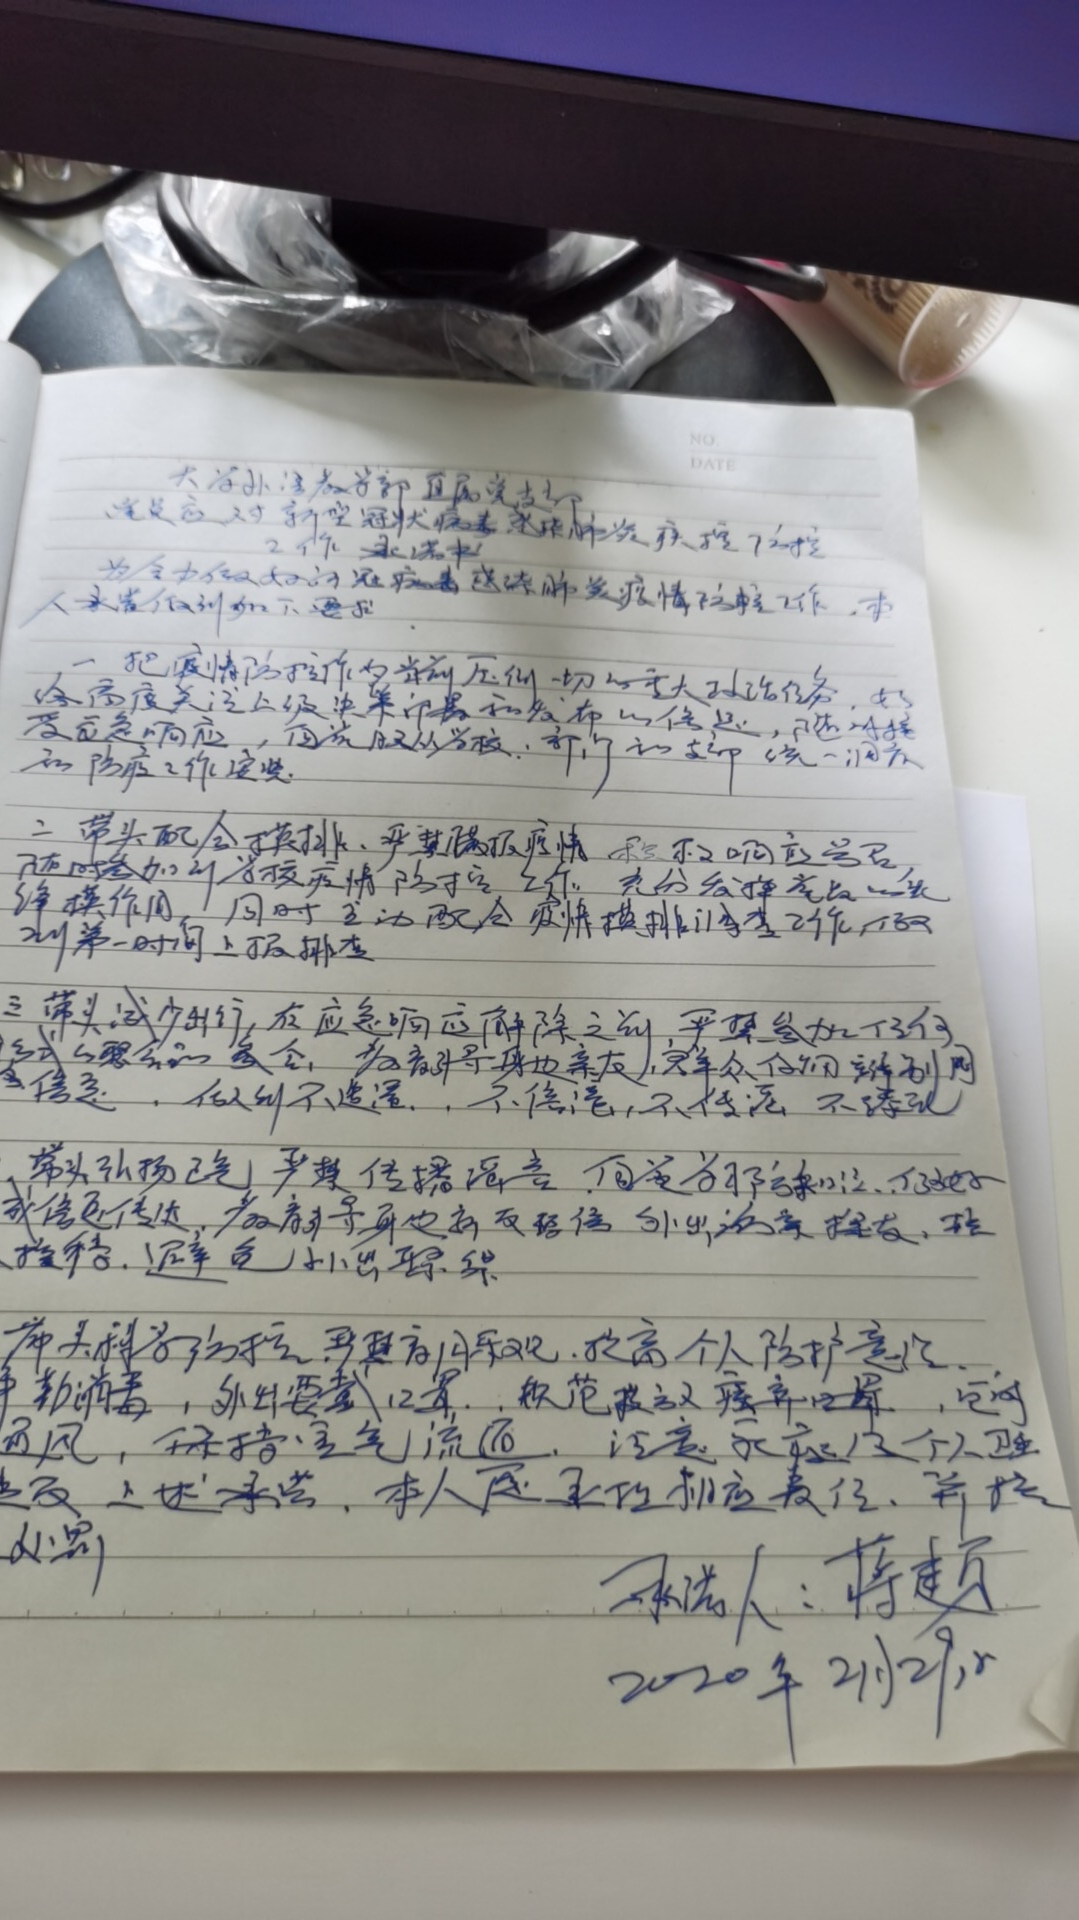 NO.
DATE
大学外语教学部直属党支部
党员应对新型冠状病毒感染肺炎疫情防控
工作承诺书
为全力做好新冠病毒感染肺炎疫情防控工作，本
人承诺做到如下要求
一 把疫情防控作为当前压倒一切的重大政治任务，
高度关注上级决策部署和发布的信息，随时接
受应急响应，自觉服从学校、部门和支部统一调度
和防疫工作安排.
二 带头配合摸排、严禁瞒报疫情 积极响应号召，
随时参加到学校疫情防控工作。充分发挥党员的先
锋模作用，同时主动配合疫情摸排调查工作，做
到第一时间上报排查
三 带头减少出行，在应急响应解除之前，严禁参加任何
形式的聚会和宴会，教育引导身边亲友，群众
信息，做到不造谣，不信谣，不传谣
带头弘扬正气，严禁传播谣言，自觉学习防疫知识、做好
信息传达，教育引导身边亲友 外出
避免外出聚集
带头科学防控，严禁盲目乐观，提高个人防护意识、
勤消毒，外出要戴口罩，规范投放废弃口罩，
通风，保持空气流通，注意 个人卫生
违反上述承诺，本人愿承担相应责任，并接
处罚
承诺人：蒋
2020年2月29日